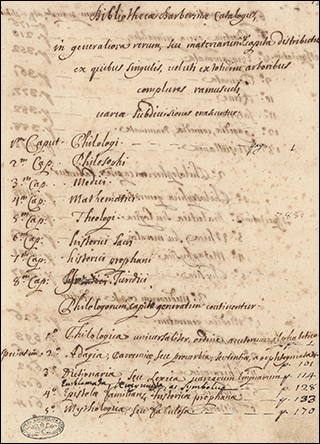 Bibliothecæ Barberinæ Catalogus,
in generaliora rerum, seu materiarum capita distributus
ex quibus singulis, veluti ex totidem arboribus
complures ramusculi,
variæ subdivisiones enascuntur
1.um Caput - Philologi - pag. 1
2.um Cap. - Philosophi
3.um Cap. - Medici
4.um Cap. Mathematici
5.um Cap: Theologi
6.um Cap: historici sacri
7.um Cap: historici prophani
8.um Cap: Juridici
Philologorum capite generatim continentur
1.o Philologica universaliter, ordine auctorum alphabetico
2.o Adagia, Carmina, seu proverbia, sententiæ, apophtegmata p. 101
3.o Dictionaria seu Lexica variarum linguarum p. 114
Emblemata ac Symbolica p. 128
4.o Epistolæ familiares, historica prophana p. 133
5.o Mythologica, seu fabulosa p. 170